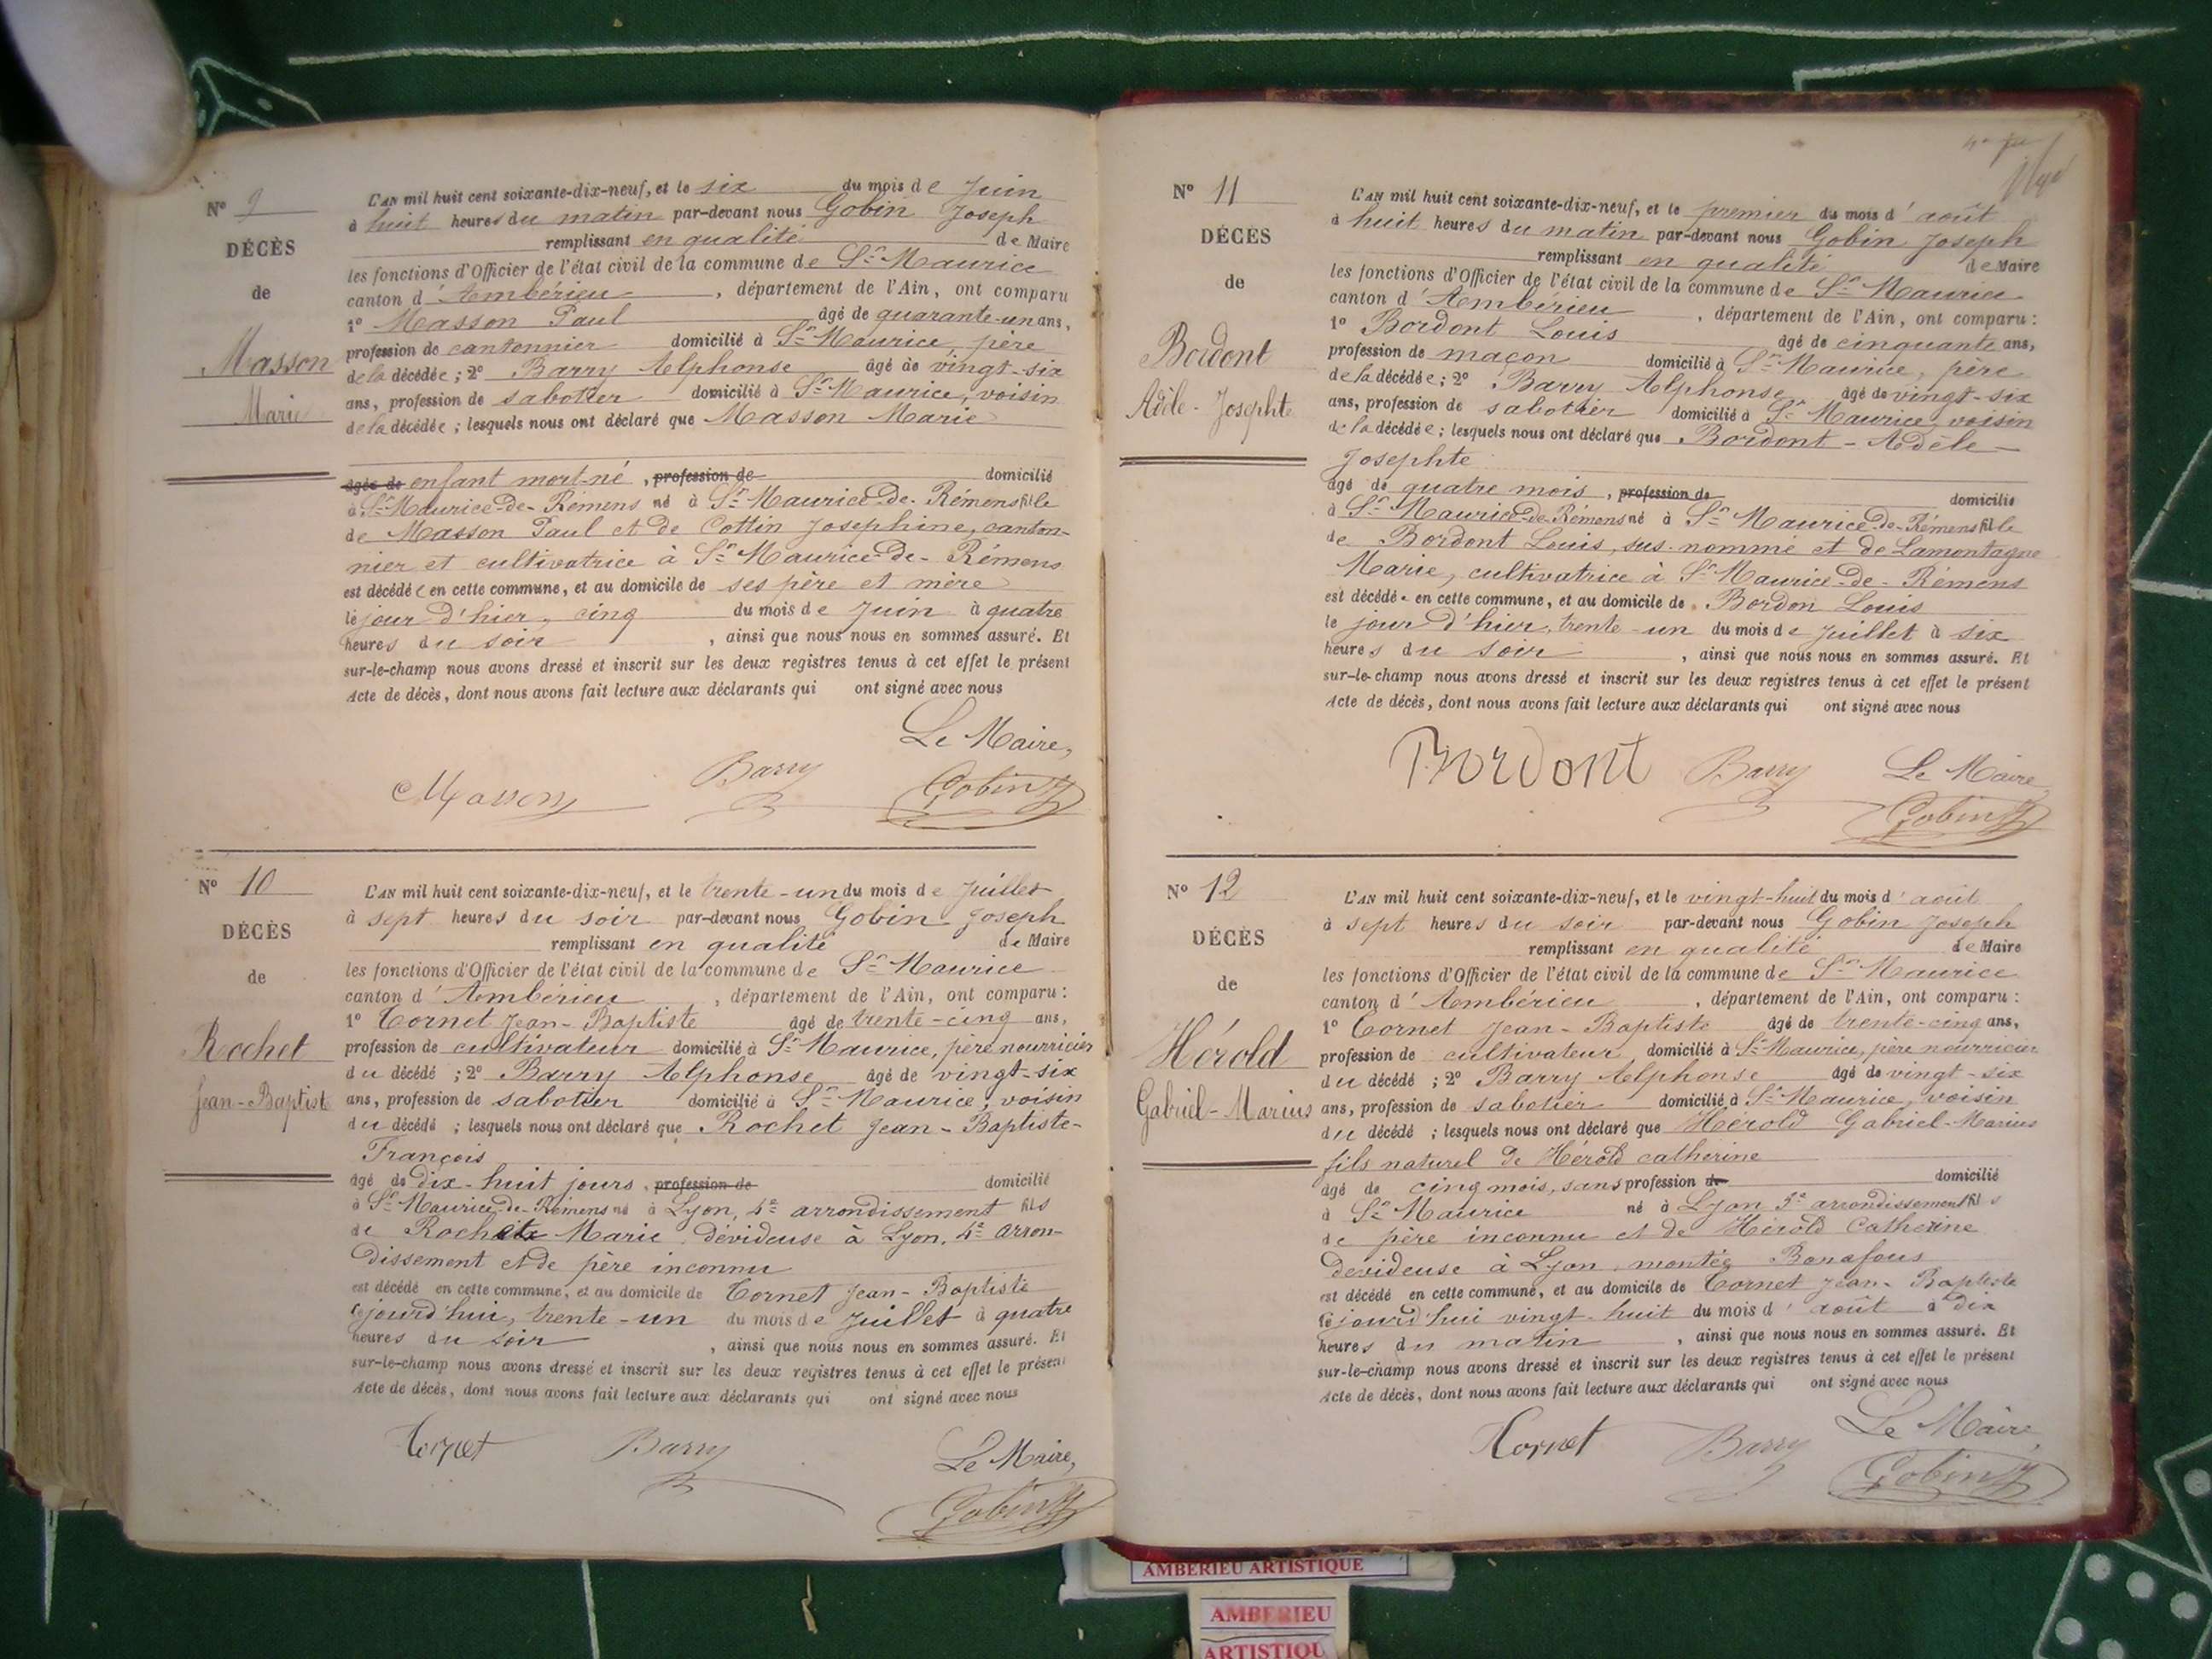 N° 9
DÉCÈS
de
Masson
Marie
L'AN mil huit cent soixante-dix-neuf, et le six du mois de Juin
à huit heures du matin par-devant nous Gobin Joseph
remplissant en qualité de Maire
les fonctions d'Officier de l'état civil de la commune de St Maurice
canton d'Ambérieu, département de l'Ain, ont comparu
1° Masson Paul âgé de quarante-un ans,
profession de cantonnier domicilié à St Maurice, père
de la décédée ; 2° Barry Alphonse âgé de vingt-six
ans, profession de sabotier domicilié à St Maurice, voisin
de la décédée ; lesquels nous ont déclaré que Masson Marie
âgée de enfant mort-né, profession de domicilié
à St Maurice-de-Rémens né à St Maurice-de-Rémens fille
de Masson Paul et de Cottin Josephine, canton-
nier et cultivatrice à St Maurice-de-Rémens
est décédée en cette commune, et au domicile de ses père et mère
le jour d'hier, cinq du mois de Juin à quatre
heures du soir, ainsi que nous nous en sommes assuré. Et
sur-le-champ nous avons dressé et inscrit sur les deux registres tenus à cet effet le présent
Acte de décès, dont nous avons fait lecture aux déclarants qui ont signé avec nous
Le Maire,
Masson Barry Gobin J
N° 10
DÉCÈS
de
Rochet
Jean-Baptiste
L'AN mil huit cent soixante-dix-neuf, et le trente-un du mois de Juillet
à sept heures du soir par-devant nous Gobin Joseph
remplissant en qualité de Maire
les fonctions d'Officier de l'état civil de la commune de St Maurice
canton d'Ambérieu, département de l'Ain, ont comparu :
1° Cornet Jean-Baptiste âgé de trente-cinq ans,
profession de cultivateur domicilié à St Maurice, père nourricier
du décédé ; 2° Barry Alphonse âgé de vingt-six
ans, profession de sabotier domicilié à St Maurice, voisin
du décédé ; lesquels nous ont déclaré que Rochet Jean-Baptiste-
François
âgé de dix-huit jours, profession de domicilié
à St Maurice-de-Rémens né à Lyon, 4e arrondissement fils
de Marie dévideuse à Lyon, 4e arron-
dissement et de père inconnu
est décédé en cette commune, et au domicile de Cornet Jean-Baptiste
cejourd'hui, trente-un du mois de Juillet à quatre
heures du soir, ainsi que nous nous en sommes assuré. Et
sur-le-champ nous avons dressé et inscrit sur les deux registres tenus à cet effet le présent
Acte de décès, dont nous avons fait lecture aux déclarants qui ont signé avec nous
Cornet Barry Le Maire,
Gobin J
N° 11
DÉCÈS
de
Bordont
Adèle-Josephte
L'AN mil huit cent soixante-dix-neuf, et le premier du mois d'août
à huit heures du matin par-devant nous Gobin Joseph
remplissant en qualité de Maire
les fonctions d'Officier de l'état civil de la commune de St Maurice
canton d'Ambérieu, département de l'Ain, ont comparu :
1° Bordont Louis âgé de cinquante ans,
profession de maçon domicilié à St Maurice, père
de la décédée ; 2° Barry Alphonse âgé de vingt-six
ans, profession de sabotier domicilié à St Maurice, voisin
de la décédée ; lesquels nous ont déclaré que Bordont-Adèle-
Josephte
âgé de quatre mois, profession de domicilié
à St Maurice-de-Rémens né à St Maurice-de-Rémens fille
de Bordont Louis, sus-nommé et de Lamontagne
Marie, cultivatrice à St Maurice-de-Rémens
est décédée en cette commune, et au domicile de Bordon Louis
le jour d'hier, trente-un du mois de Juillet à six
heures du soir, ainsi que nous nous en sommes assuré. Et
sur-le-champ nous avons dressé et inscrit sur les deux registres tenus à cet effet le présent
Acte de décès, dont nous avons fait lecture aux déclarants qui ont signé avec nous
Bordont Barry Le Maire
Gobin J
N° 12
DÉCÈS
de
Hérold
Gabriel-Marius
L'AN mil huit cent soixante-dix-neuf, et le vingt-huit du mois d'août
à sept heures du soir par-devant nous Gobin Joseph
remplissant en qualité de Maire
les fonctions d'Officier de l'état civil de la commune de St Maurice
canton d'Ambérieu, département de l'Ain, ont comparu :
1° Cornet Jean-Baptiste âgé de trente-cinq ans,
profession de cultivateur domicilié à St Maurice, père nourricier
du décédé ; 2° Barry Alphonse âgé de vingt-six
ans, profession de sabotier domicilié à St Maurice, voisin
du décédé ; lesquels nous ont déclaré que Hérold Gabriel-Marius
fils naturel de Hérold catherine
âgé de cinq mois, sans profession de domicilié
à St Maurice né à Lyon arrondissement fils
de père inconnu et de Hérold Catherine
devideuse à Lyon, montée Bonafous
est décédé en cette commune, et au domicile de Cornet Jean-Baptiste
cejourd'hui vingt-huit du mois d'août à dix
heures du matin, ainsi que nous nous en sommes assuré. Et
sur-le-champ nous avons dressé et inscrit sur les deux registres tenus à cet effet le présent
Acte de décès, dont nous avons fait lecture aux déclarants qui ont signé avec nous
Cornet Barry Le Maire,
Gobin J
AMBERIEU ARTISTIQUE
AMBERIEU
ARTISTIQU